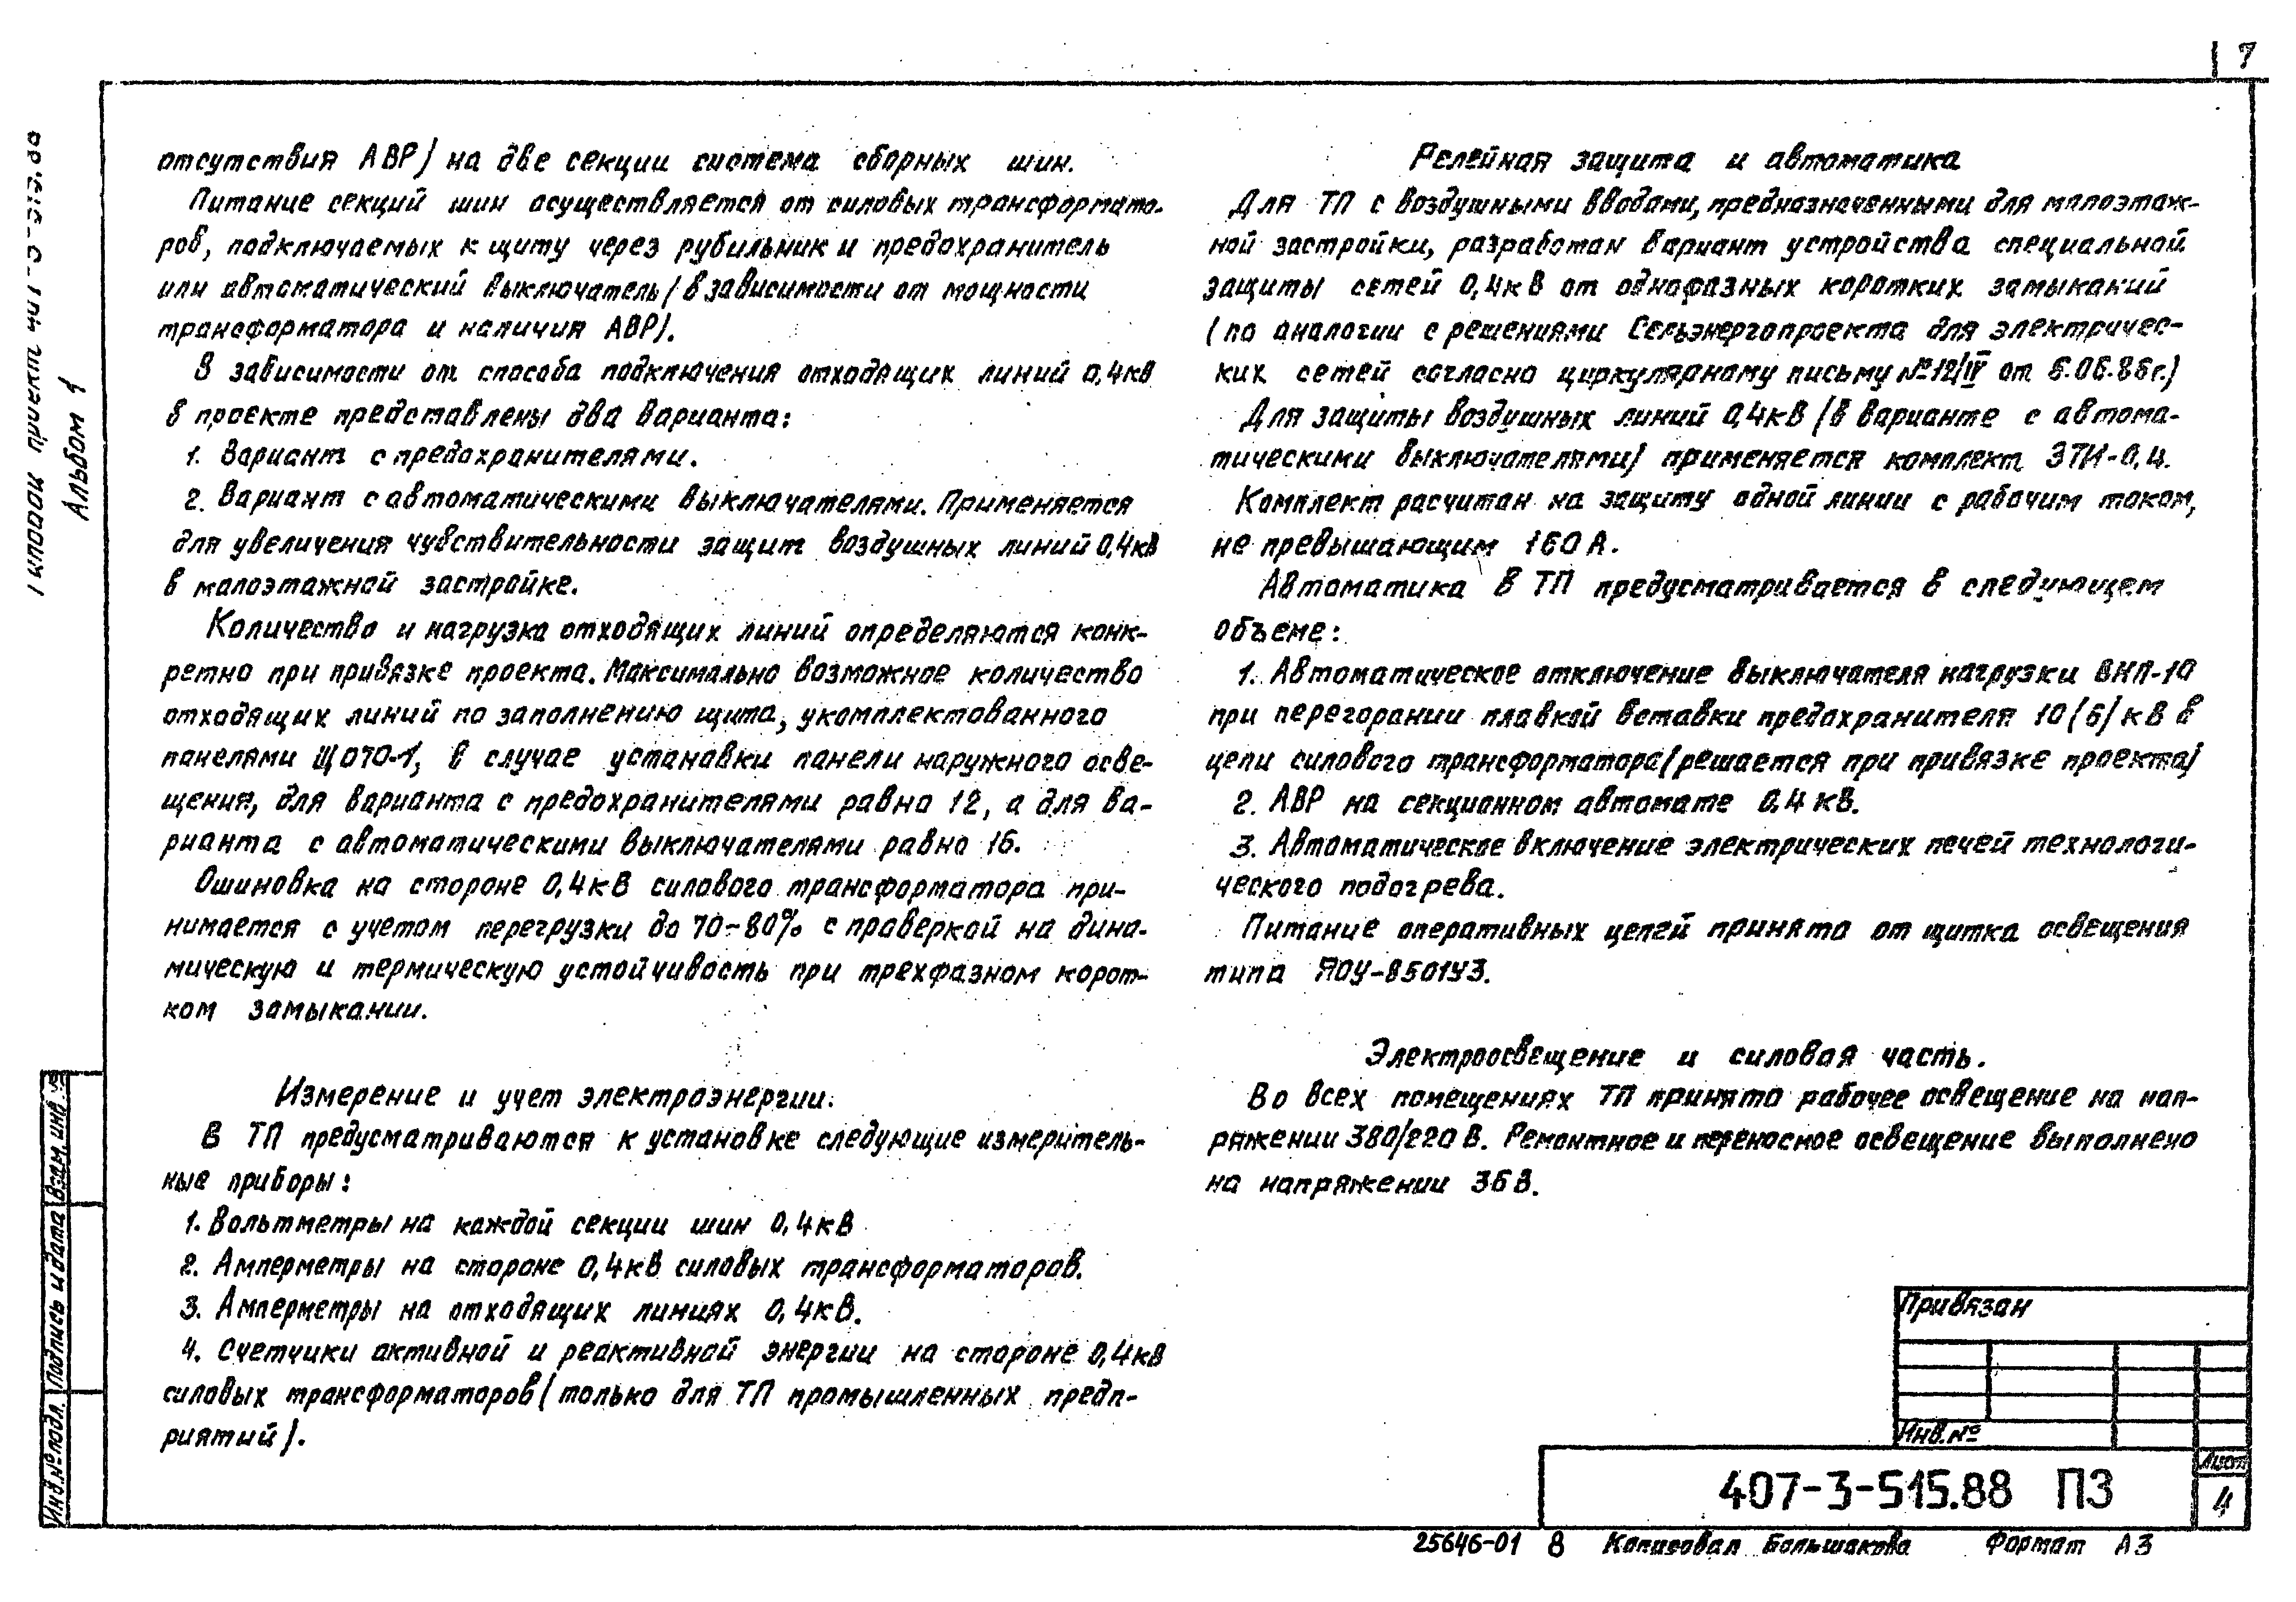 7
Типовой проект 407-3-515.88
Альбом 1
отсутствия АВР) на две секции система сборных шин.
Питание секций шин осуществляется от силовых трансформато-
ров, подключаемых к щиту через рубильник и предохранитель
или автоматический выключатель (в зависимости от мощности
трансформатора и наличия АВР).
В зависимости от способа подключения отходящих линий 0,4кВ
в проекте представлены два варианта:
1. Вариант с предохранителями.
2. Вариант с автоматическими выключателями. Применяется
для увеличения чувствительности защит воздушных линий 0,4кВ
в малоэтажной застройке.
Количество и нагрузка отходящих линий определяются конк-
ретно при привязке проекта. Максимально возможное количество
отходящих линий по заполнению щита, укомплектованного
панелями ЩО70-1, в случае установки панели наружного осве-
щения, для варианта с предохранителями равно 12, а для ва-
рианта с автоматическими выключателями равно 16.
Ошиновка на стороне 0,4кВ силового трансформатора при-
нимается с учетом перегрузки до 70-80% с проверкой на дина-
мическую и термическую устойчивость при трехфазном корот-
ком замыкании.
Измерение и учет электроэнергии.
В ТП предусматриваются к установке следующие измеритель-
ные приборы:
1. Вольтметры на каждой секции шин 0,4кВ
2. Амперметры на стороне 0,4кВ силовых трансформаторов.
3. Амперметры на отходящих линиях 0,4кВ.
4. Счетчики активной и реактивной энергии на стороне 0,4кВ
силовых трансформаторов (только для ТП промышленных предп-
риятий).
Релейная защита и автоматика
Для ТП с воздушными вводами, предназначенными для малоэтаж-
ной застройки, разработан вариант устройства специальной
защиты сетей 0,4кВ от однофазных коротких замыканий
(по аналогии с решениями Сельэнергопроекта для электричес-
ких сетей согласно циркулярному письму №12/IV от 6.06.86г.)
Для защиты воздушных линий 0,4кВ (в варианте с автома-
тическими выключателями) применяется комплект ЗТИ-0,4.
Комплект расчитан на защиту одной линии с рабочим током,
не превышающим 160А.
Автоматика в ТП предусматривается в следующем
объеме:
1. Автоматическое отключение выключателя нагрузки ВНП-10
при перегорании плавкой вставки предохранителя 10(6)кВ в
цепи силового трансформатора (решается при привязке проекта)
2. АВР на секционном автомате 0,4кВ.
3. Автоматическое включение электрических печей технологи-
ческого подогрева.
Питание оперативных цепей принято от щитка освещения
типа ЯОУ-8501У3.
Электроосвещение и силовая часть.
Во всех помещениях ТП принято рабочее освещение на нап-
ряжении 380/220В. Ремонтное и переносное освещение выполнено
на напряжении 36В.
Привязан
Инв.№
407-3-515.88 ПЗ
Лист
4
Инв.№подл. Подпись и дата Взам. инв.№
25646-01 8 Копировал Большакова Формат А3